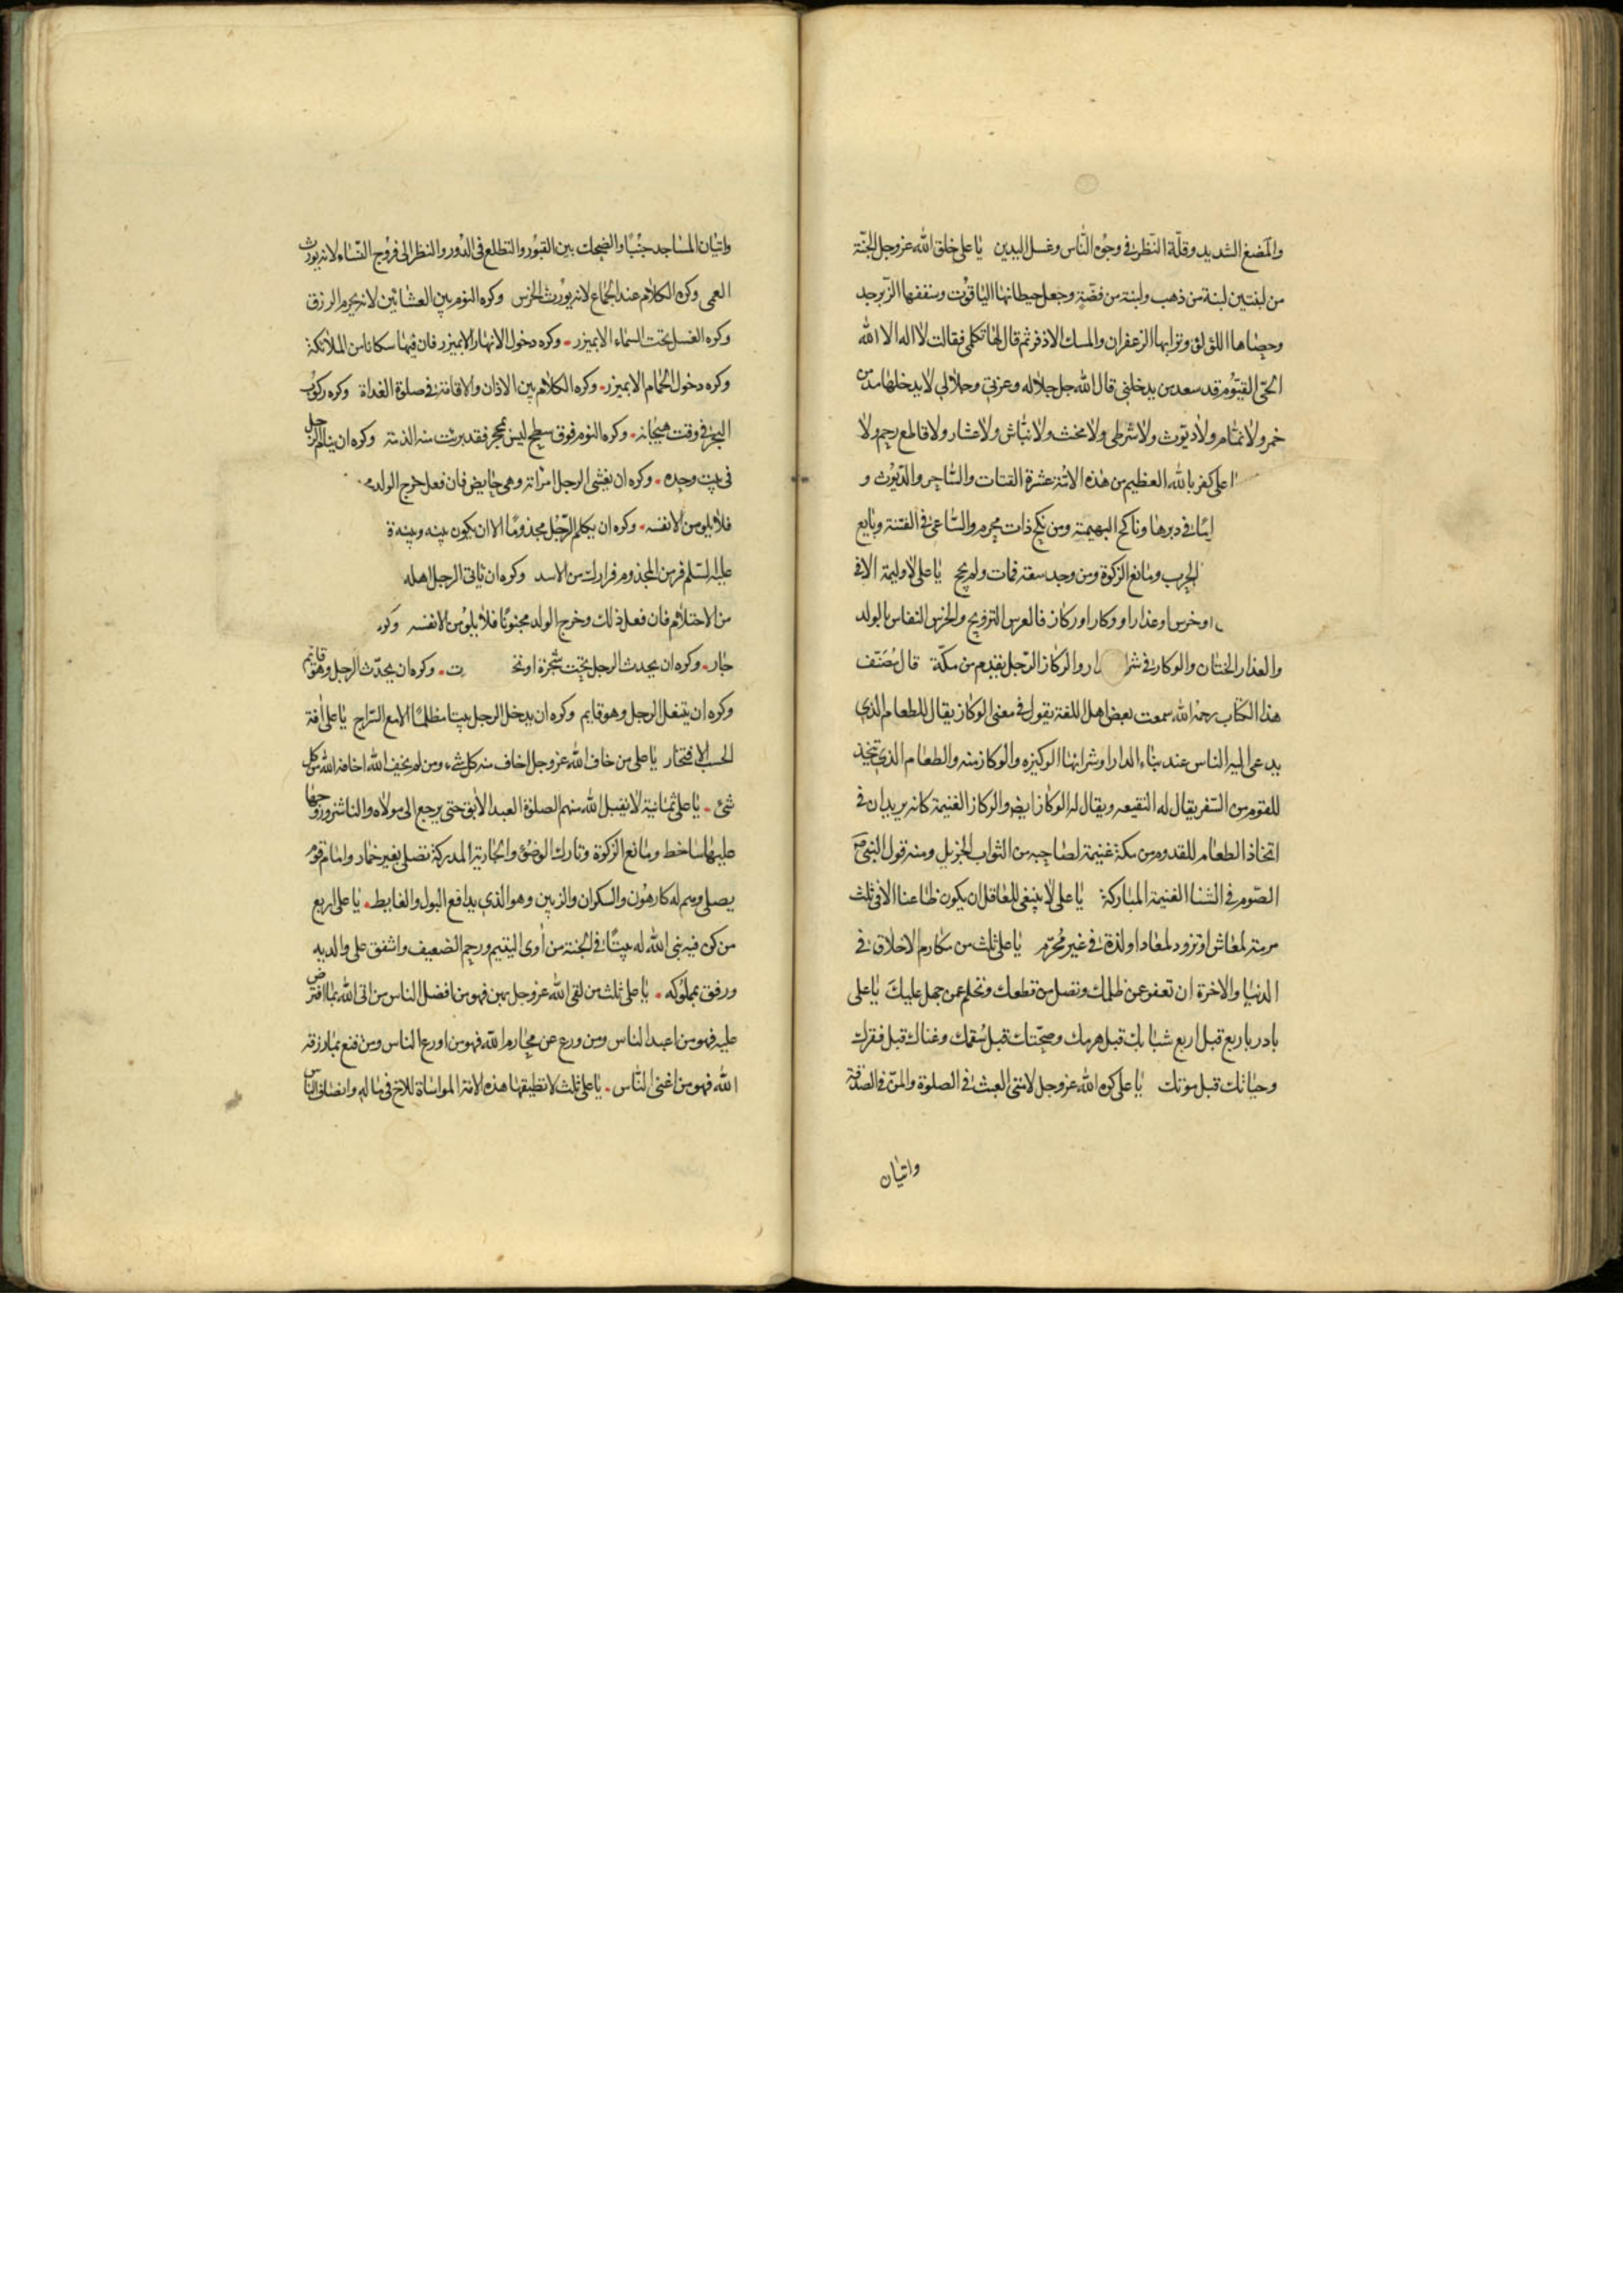 والمضغ الشديد وقلة النظر في وجوه الناس وغسل اليدين يا على خلق الله عز وجل الجنة
من لبنتين لبنة من ذهب ولبنة من فضة وجعل حيطانها الياقوت وسقفها الزبرجد
وحصاها اللؤلؤ وترابها الزعفران والمسك الاذفر ثم قال لها تكلمى فقالت لا اله الا الله
الحى القيوم قد سعد من يدخلنى قال الله جل جلاله وعزتى وجلالى لا يدخلها مدمن
خمر ولا نمام ولا ديوث ولا شرطى ولا مخنث ولا نباش ولا عشار ولا قاطع رحم ولا
ا على كفر بالله العظيم من هذه الامة عشرة القتات والساحر والديوث و
في دبرها وناكح البهيمة ومن نكح ذات محرم والساعى في الفتنة وبايع
الحرب ومانع الزكوة ومن وجد سعة فمات ولم يحج يا على لا وليمة الا فى
او خرس او عذار او وكار او ركاز فالعرس التزويج والخرس النفاس بالولد
والعذار الختان والوكار في شر ار والركاز الرجل يقدم من مكة قال مصنف
هذا الكتاب رحمه الله سمعت بعض اهل اللغة يقول في معنى الوكاز يقال للطعام الذي
يدعى اليه الناس عند بناء الدار او شرائها الوكيزه والوكاز منه والطعام الذي يتخذ
للقوم من السفر يقال له النقيعه ويقال له الوكاز ايضا والركاز الغنيمة كانه يريد ان في
اتخاذ الطعام للقدوم من مكة غنيمة لصاحبه من الثواب الجزيل ومنه قول النبي ص
الصوم في الشتا الغنيمة المباركة يا على لا ينبغى للعاقل ان يكون ظاعنا الا فى ثلث
مرمة لمعاش او تزود لمعاد او لذة في غير محرم يا على ثلث من مكارم الاخلاق في
الدنيا والاخرة ان تعفو عن ظلمك وتصل من قطعك وتحلم عن جهل عليك يا على
بادر باربع قبل اربع شبابك قبل هرمك وصحتك قبل سقمك وغناك قبل فقرك
وحياتك قبل موتك يا على كره الله عز وجل لامتى العبث في الصلوة والمن في الصدقة
واتيان
واتيان المساجد جنبا والضحك بين القبور والتطلع فى الدور والنظر الى فروج النساء لانه يورث
العمى وكره الكلام عند الجماع لانه يورث الخرس وكره النوم بين العشائين لانه يحرم الرزق
وكره الغسل تحت السماء الا بميزر وكره دخول الانهار الا بميزر فان فيها سكانا من الملائكة
وكره دخول الحمام الا بميزر وكره الكلام بين الاذان والاقامة في صلوة الغداة وكره ركوب
البحر في وقت هيجانه وكره النوم فوق سطح ليس بمحجر فقد برئت منه الذمة وكره ان ينام الرجل
فى بيت وحده وكره ان يغشى الرجل امراته وهى حايض فان فعل خرج الولد
فلا يلومن الا نفسه وكره ان يكلم الرجل مجذوما الا ان يكون بينه وبينه
عليه السلم فر من المجذوم فرارك من الاسد وكره ان ياتى الرجل اهله
من الاحتلام فان فعل ذلك وخرج الولد مجنونا فلا يلومن الا نفسه وكره
جار وكره ان يحدث الرجل تحت شجرة او نخ ت وكره ان يحدث الرجل وهو قائم
وكره ان يتنعل الرجل وهو قايم وكره ان يدخل الرجل بيتا مظلما الا مع السراج يا على افة
الحسب الافتخار يا على من خاف الله عز وجل اخاف منه كل شيء ومن لم يخف الله اخافه الله من كل
شئ يا على ثمانية لا يقبل الله منهم الصلوة العبد الابق حتى يرجع الى مولاه والناشز وزوجها
عليها ساخط ومانع الزكوة وتارك الوضوء والجارية المدركة تصلى بغير خمار وامام قوم
يصلى وهم له كارهون والسكران والزبين وهو الذي يدافع البول والغايط يا على اربع
من كن فيه بنى الله له بيتا في الجنة من أوى اليتيم ورحم الضعيف واشفق على والديه
ورفق بمملوكه يا على ثلث من لقى الله عز وجل بهن فهو من افضل الناس من اتى الله بما افترض
عليه فهو من اعبد الناس ومن ورع عن محارم الله فهو من اورع الناس ومن قنع بما رزقه
الله فهو من اغنى الناس يا على ثلث لا تطيقها هذه الامة المواساة للاخ في ماله وانصاف الناس